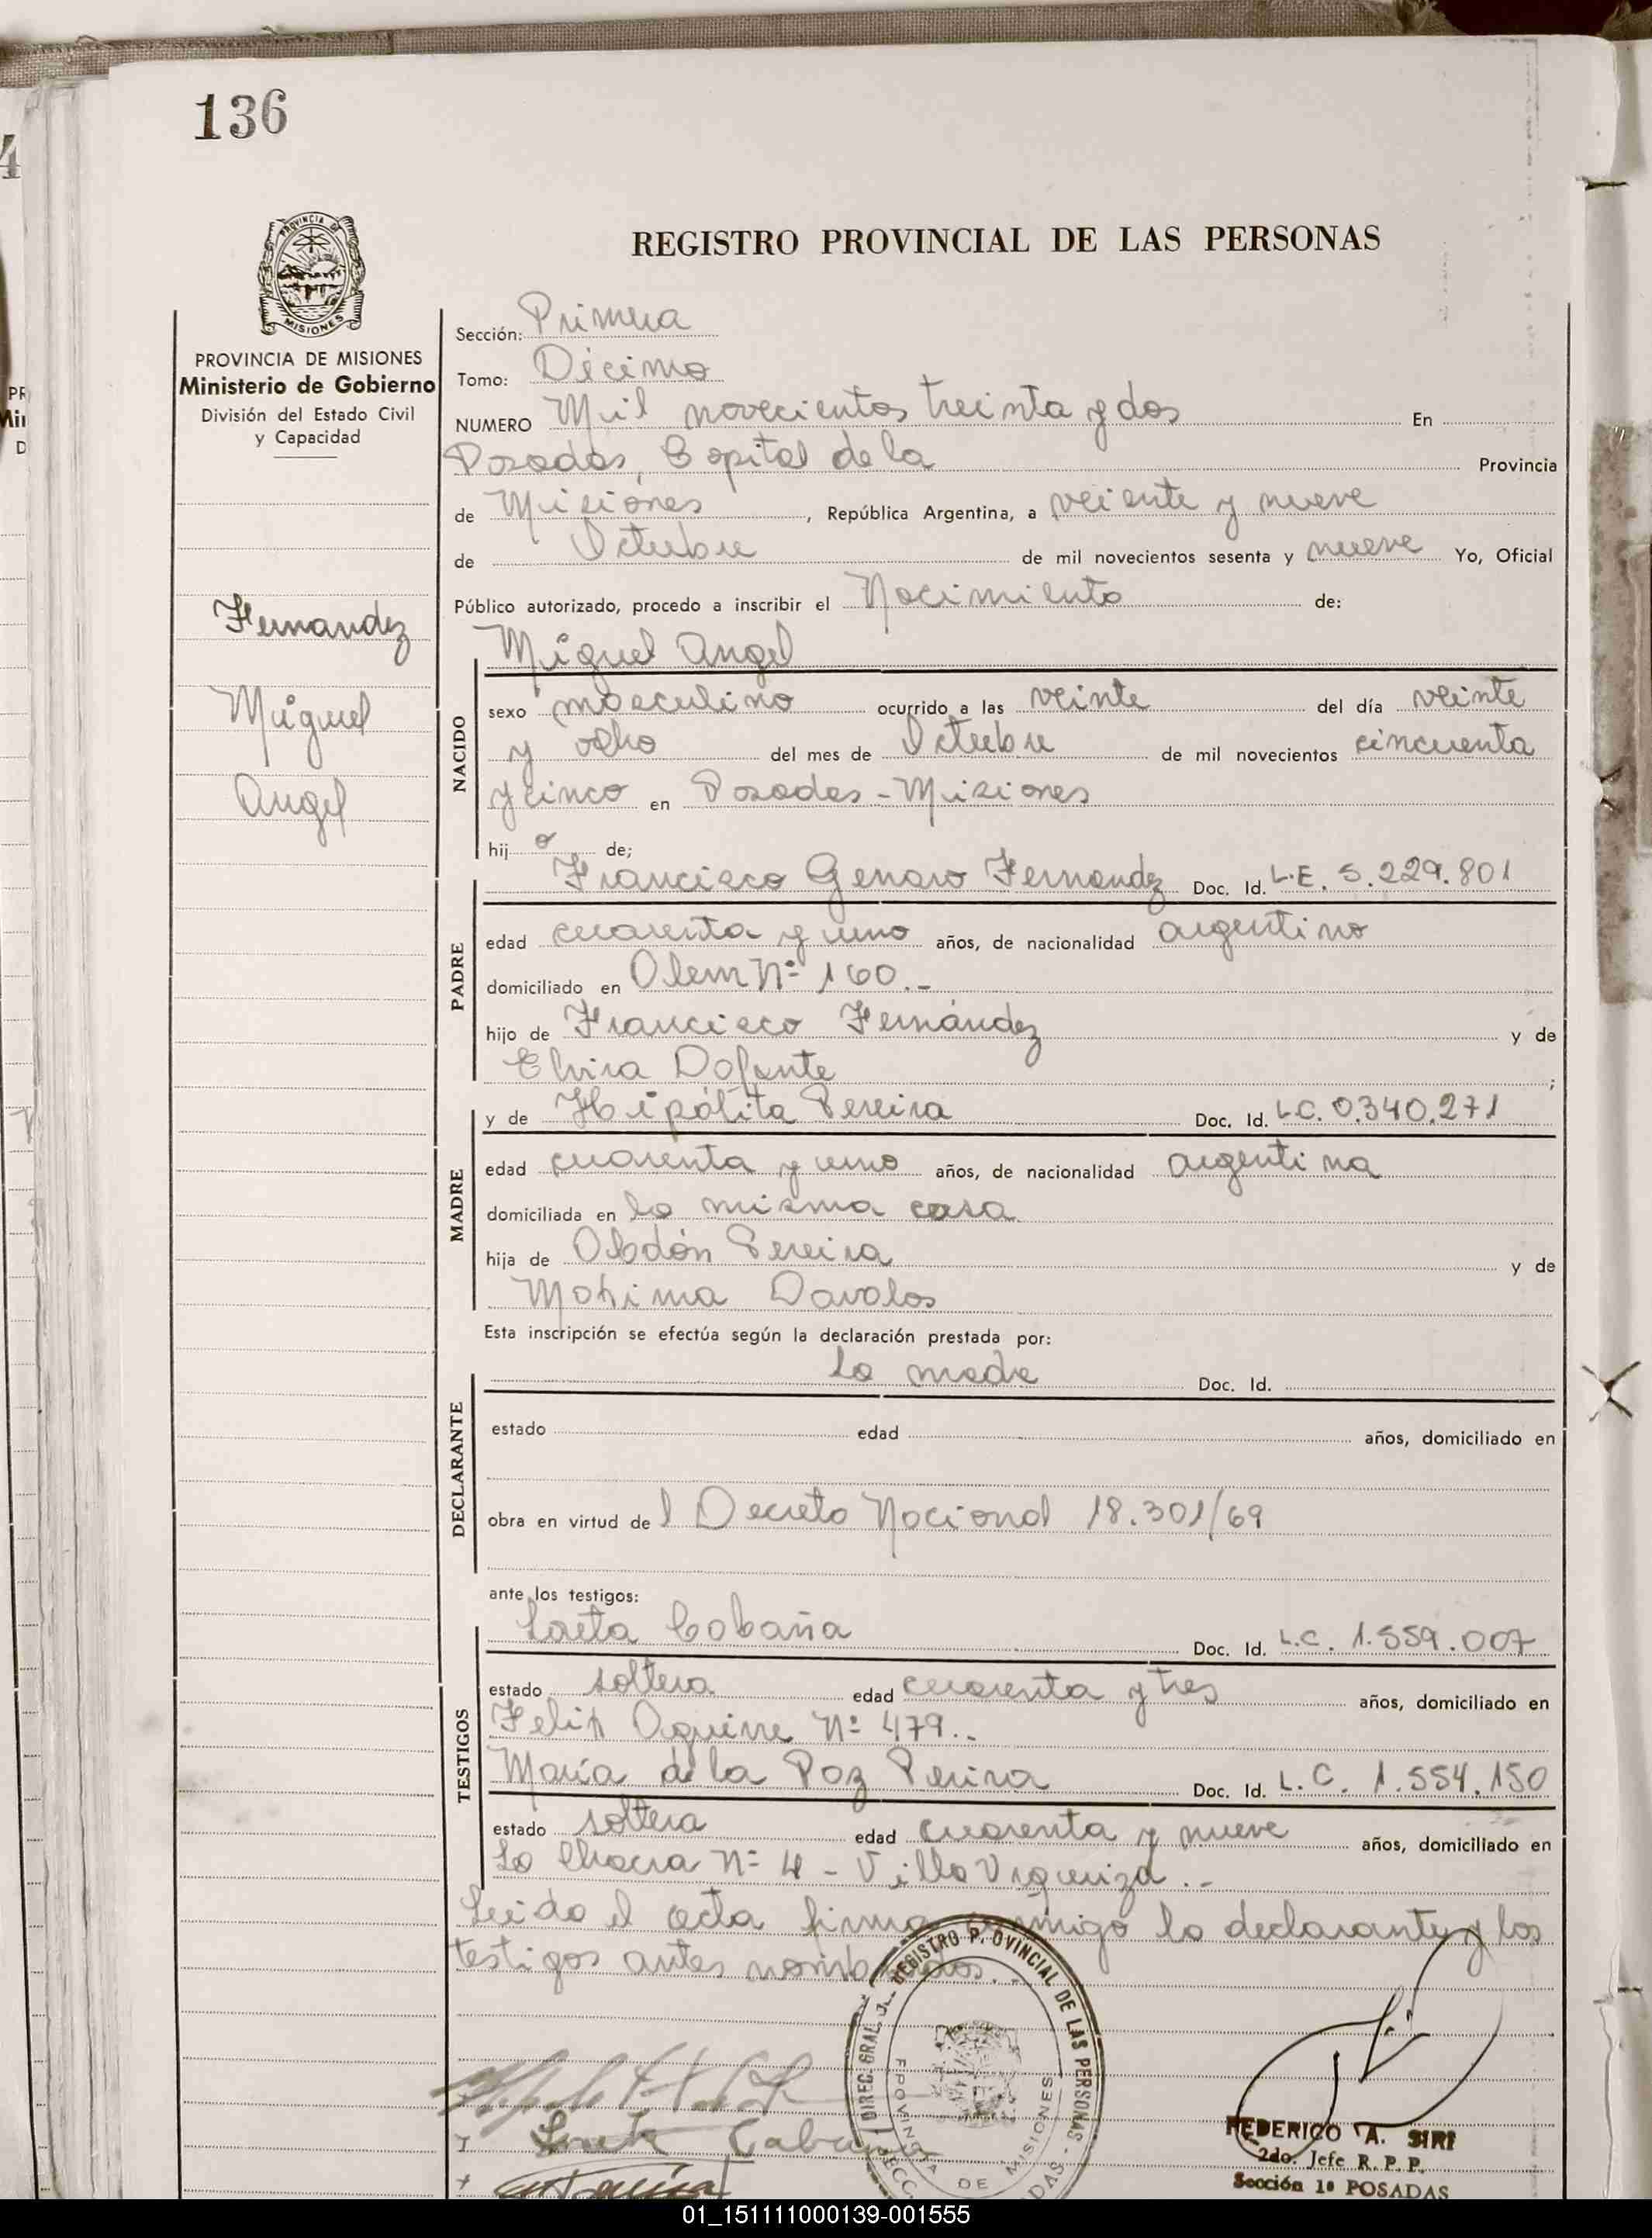 136
REGISTRO PROVINCIAL DE LAS PERSONAS
PROVINCIA DE
MISIONES
PROVINCIA DE MISIONES
Ministerio de Gobierno
División del Estado Civil
y Capacidad
Fernandez
Miguel
Angel
Sección: Primera
Tomo: Décimo
NUMERO Mil novecientos treinta y dos En
Posadas, Capital de la Provincia
de Misiónes, República Argentina, a veiente y nueve
de Octubre de mil novecientos sesenta y nueve Yo, Oficial
Público autorizado, procedo a inscribir el Nacimiento de:
Miguel Angel
NACIDO
sexo masculino ocurrido a las veinte del día veinte
y ocho del mes de Octubre de mil novecientos cincuenta
y cinco en Posadas - Misiones
hij o de;
Francisco Genaro Fernandez Doc. Id. L.E. 5.229.801
PADRE
edad cuarenta y uno años, de nacionalidad argentino
domiciliado en Olem Nº 160.-
hijo de Francisco Fernández y de
Elvira Dofente;
y de Hipólita Pereira Doc. Id. L.C. 0.340.271
MADRE
edad cuarenta y uno años, de nacionalidad argentina
domiciliada en la misma casa
hija de Obdón Pereira y de
Máxima Davalos
Esta inscripción se efectúa según la declaración prestada por:
la madre Doc. Id.
DECLARANTE
estado edad años, domiciliado en
obra en virtud de l Decreto Nacional 18.301/69
ante los testigos:
Cabaña Doc. Id. L.C. 1.559.007
TESTIGOS
estado soltera edad cuarenta y tres años, domiciliado en
Felix Aguirre Nº 479..
María de la Paz Pereira Doc. Id. L.C. 1.554.150
estado soltera edad cuarenta y nueve años, domiciliado en
La Chacra Nº 4 - Villa Urquiza.-
Leido el acta firma conmigo la declarante y los
testigos antes nombrados..
DIREC. GRAL. REGISTRO PROVINCIAL DE LAS PERSONAS - POSADAS
PROVINCIA DE MISIONES
FEDERICO A. SIRI
2do. Jefe R. P. P.
Sección 1º POSADAS
01_151111000139-001555